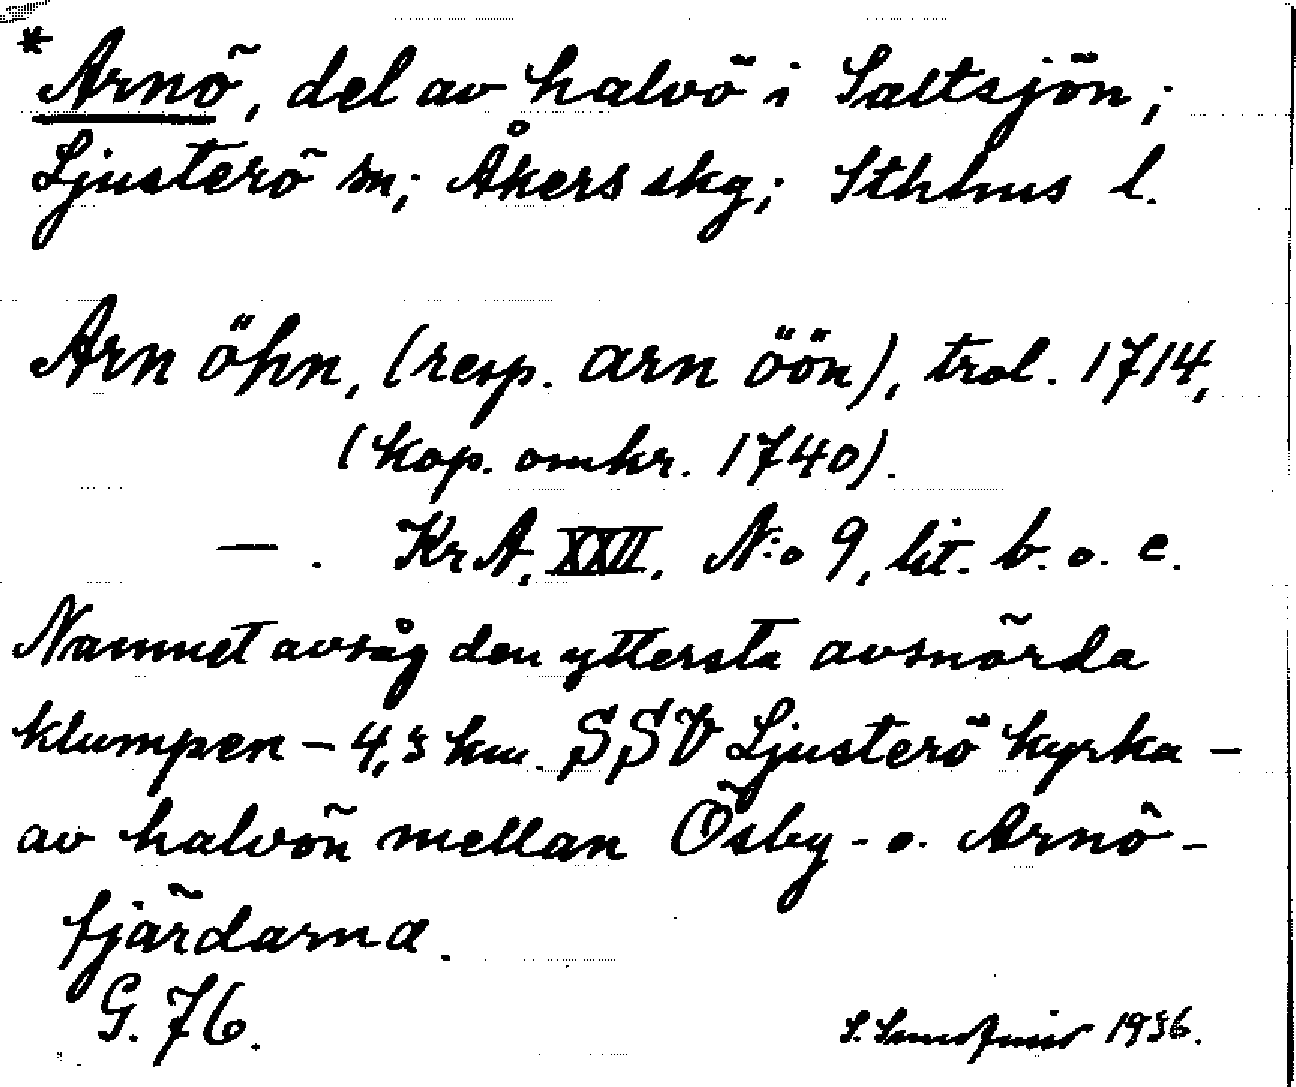 *Arnö, del av halvö i Saltsjön;
Ljusterö sn; Åkers skg; Sthlms l.
Arn öhn, (resp. arn öön), trol. 1714,
(kop. omkr. 1740).
— . KrA, XXII, N:o 9, lit. b. o. c.
Namnet avsåg den yttersta avsnörda
klumpen – 4,3 km. SSV Ljusterö kyrka –
av halvön mellan Ösby- o. Arnö-
fjärdarna.
G. 76.
S. 1936.